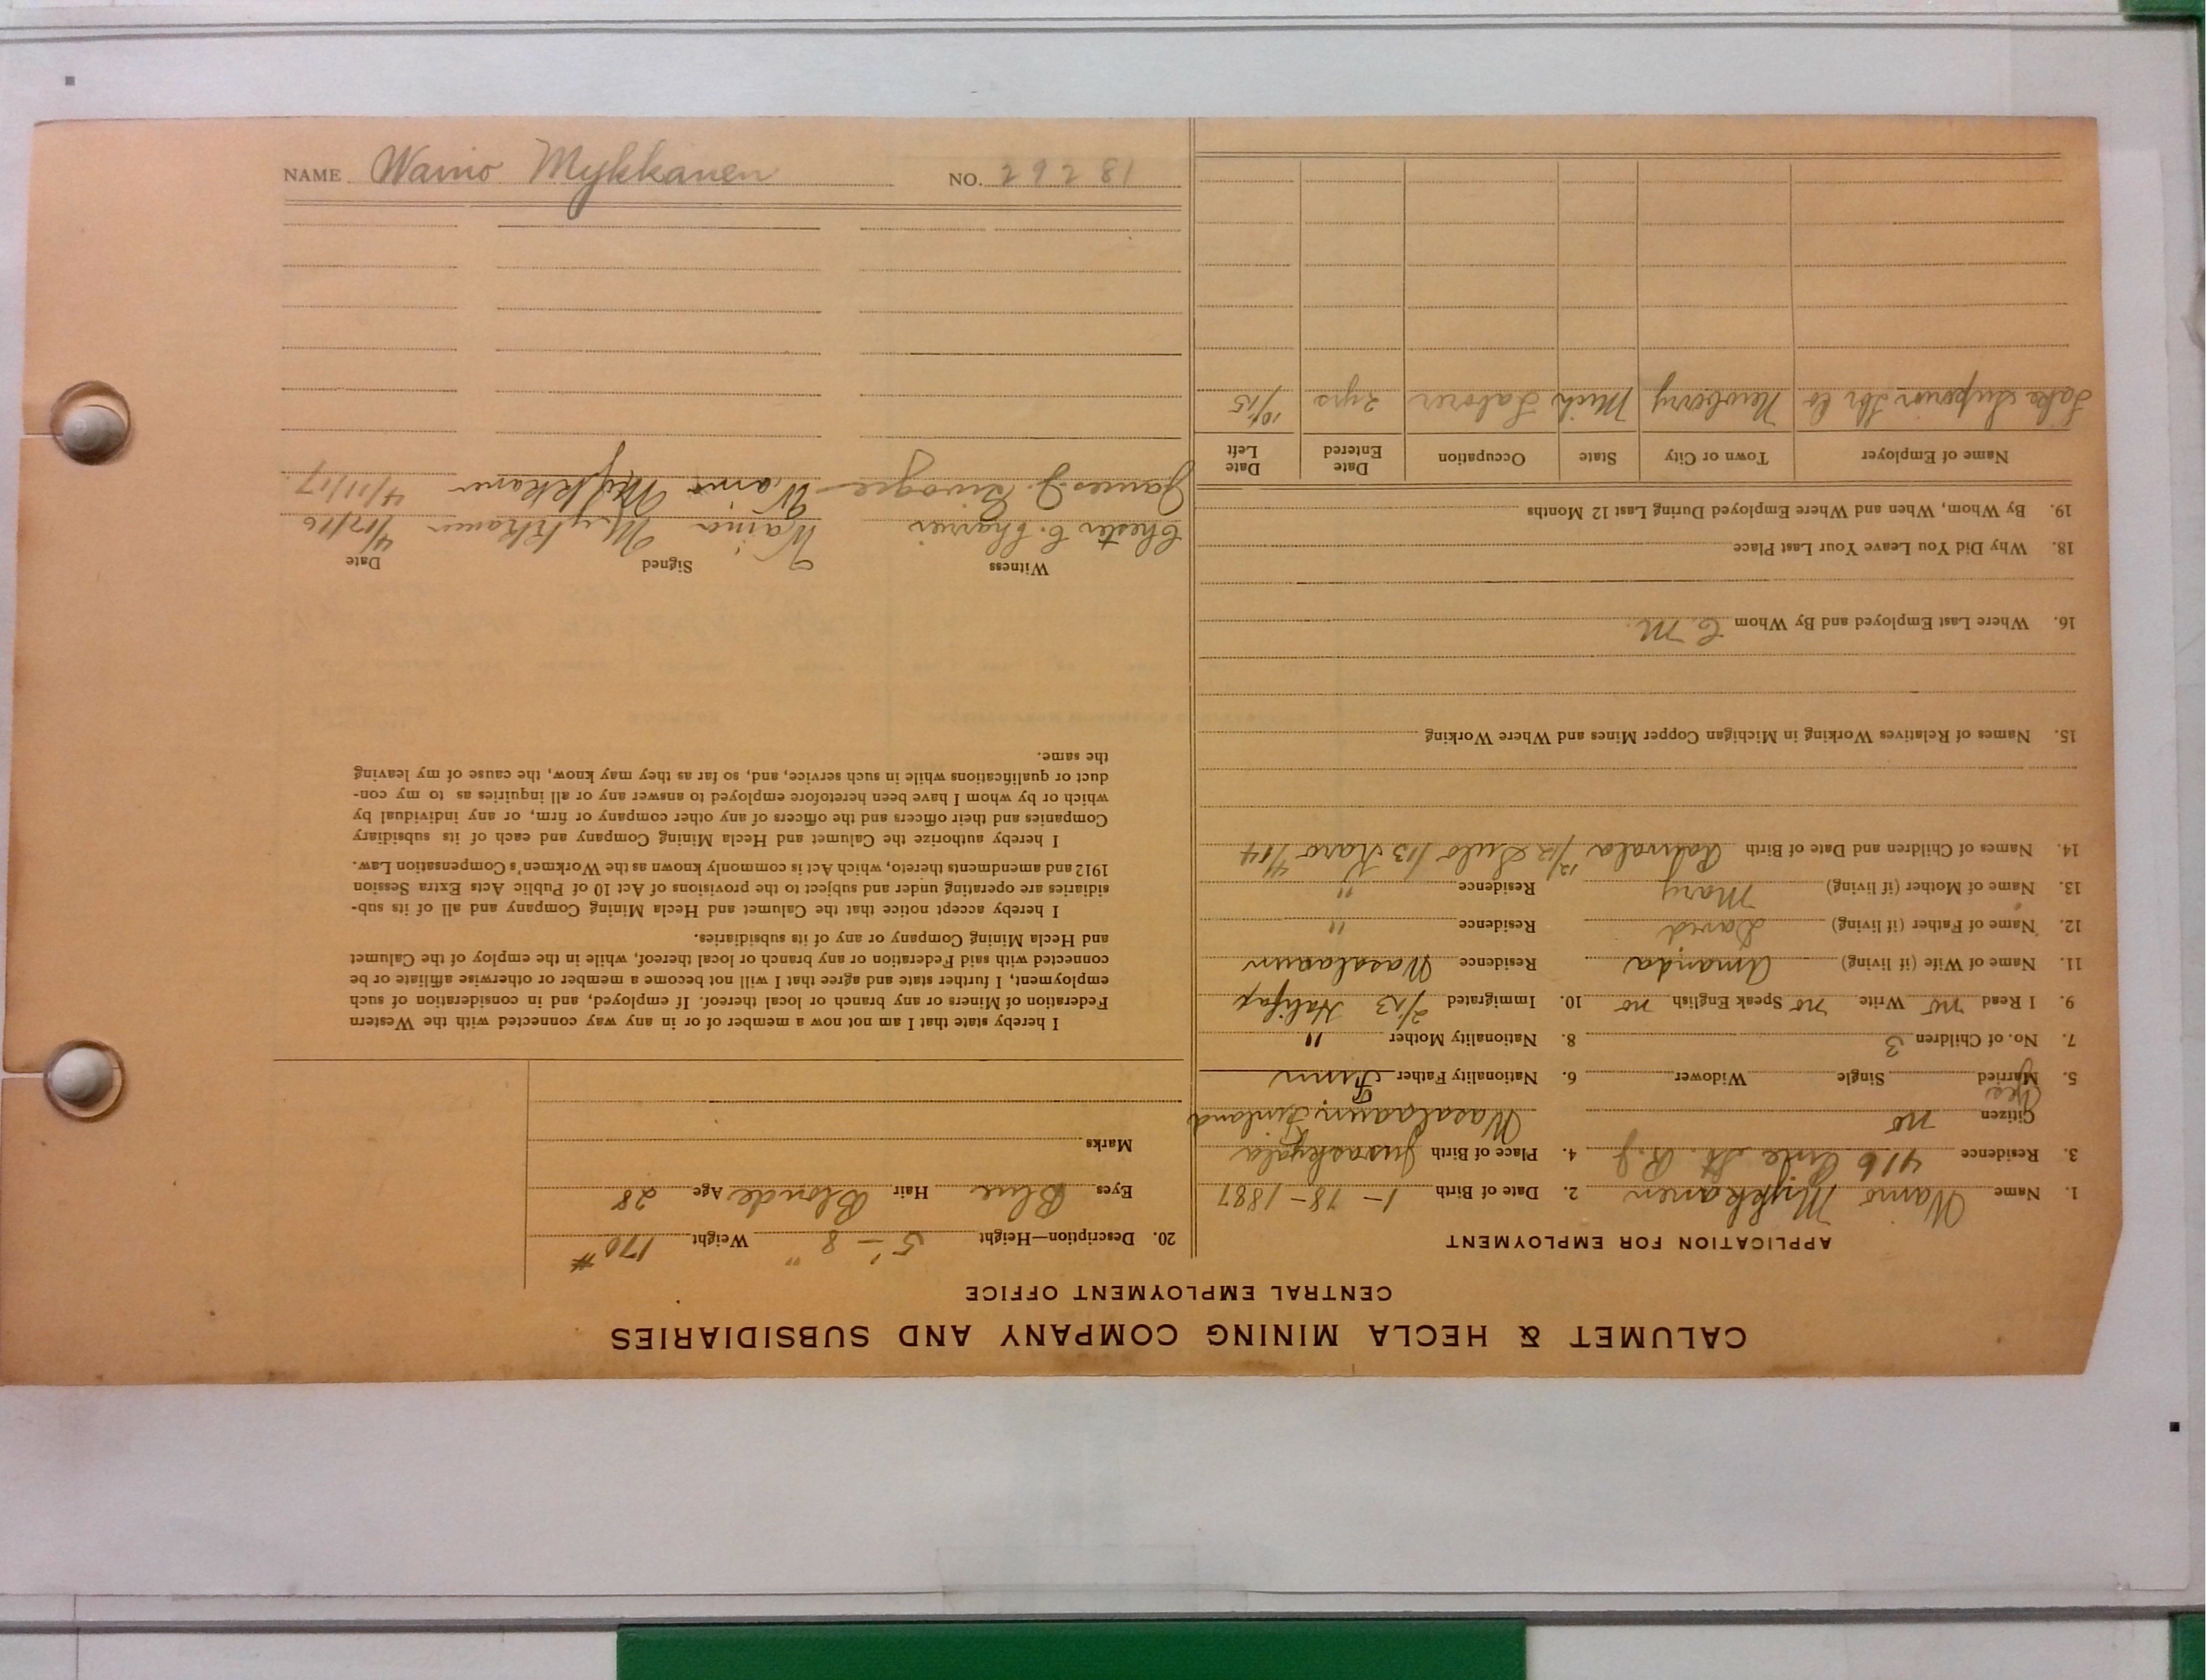 NAME Waino Mykkanen NO. 29281
CALUMET & HECLA MINING COMPANY AND SUBSIDIARIES
CENTRAL EMPLOYMENT OFFICE
APPLICATION FOR EMPLOYMENT
1. Name Waino Mykkanen 2. Date of Birth 1-18-1887
3. Residence 416 St. 4. Place of Birth
Citizen no Finland
5. Married Yes Single Widower 6. Nationality Father Finn
7. No. of Children 3 8. Nationality Mother "
9. I Read no Write no Speak English no 10. Immigrated 2/13 Halifax
11. Name of Wife (if living) Amanda Residence Wasalaann
12. Name of Father (if living) David Residence "
13. Name of Mother (if living) Mary Residence "
14. Names of Children and Date of Birth
15. Names of Relatives Working in Michigan Copper Mines and Where Working
16. Where Last Employed and By Whom C. M.
18. Why Did You Leave Your Last Place
19. By Whom, When and Where Employed During Last 12 Months
Name of Employer Town or City State Occupation Date Entered Date Left
Lake Superior Co Newberry Mich Laborer 2 yrs 10/15
20. Description—Height 5'-8" Weight 170#
Eyes Blue Hair Blonde Age 28
Marks
I hereby state that I am not now a member of or in any way connected with the Western
Federation of Miners or any branch or local thereof. If employed, and in consideration of such
employment, I further state and agree that I will not become a member or otherwise affiliate or be
connected with said Federation or any branch or local thereof, while in the employ of the Calumet
and Hecla Mining Company or any of its subsidiaries.
I hereby accept notice that the Calumet and Hecla Mining Company and all of its sub-
sidiaries are operating under and subject to the provisions of Act 10 of Public Acts Extra Session
1912 and amendments thereto, which Act is commonly known as the Workmen's Compensation Law.
I hereby authorize the Calumet and Hecla Mining Company and each of its subsidiary
Companies and their officers and the officers of any other company or firm, or any individual by
which or by whom I have been heretofore employed to answer any or all inquiries as to my con-
duct or qualifications while in such service, and, so far as they may know, the cause of my leaving
the same.
Witness Signed Date
Chester C. Waino Mykkanen 4/12/16
James J. Waino Mykkanen 4/11/17